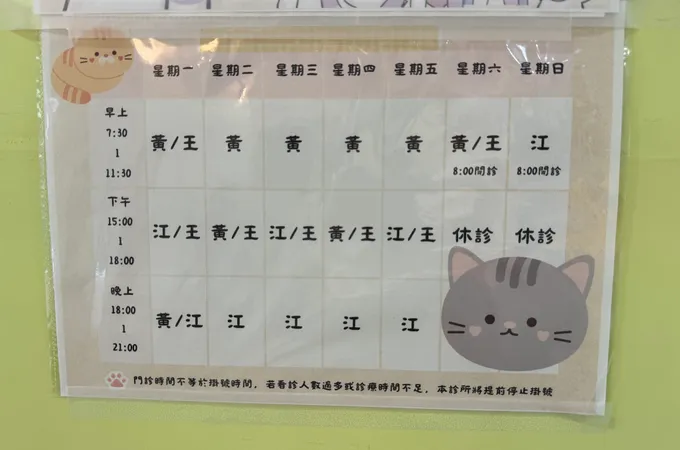 星期一 星期二 星期三 星期四 星期五 星期六 星期日
早上
7:30
|
11:30
黃/王 黃 黃 黃 黃 黃/王 江
8:00開診 8:00開診
下午
15:00
|
18:00
江/王 黃/王 江/王 黃/王 江/王 休診 休診
晚上
18:00
|
21:00
黃/江 江 江 江 江
門診時間不等於掛號時間，若看診人數過多或診療時間不足，本診所將提前停止掛號